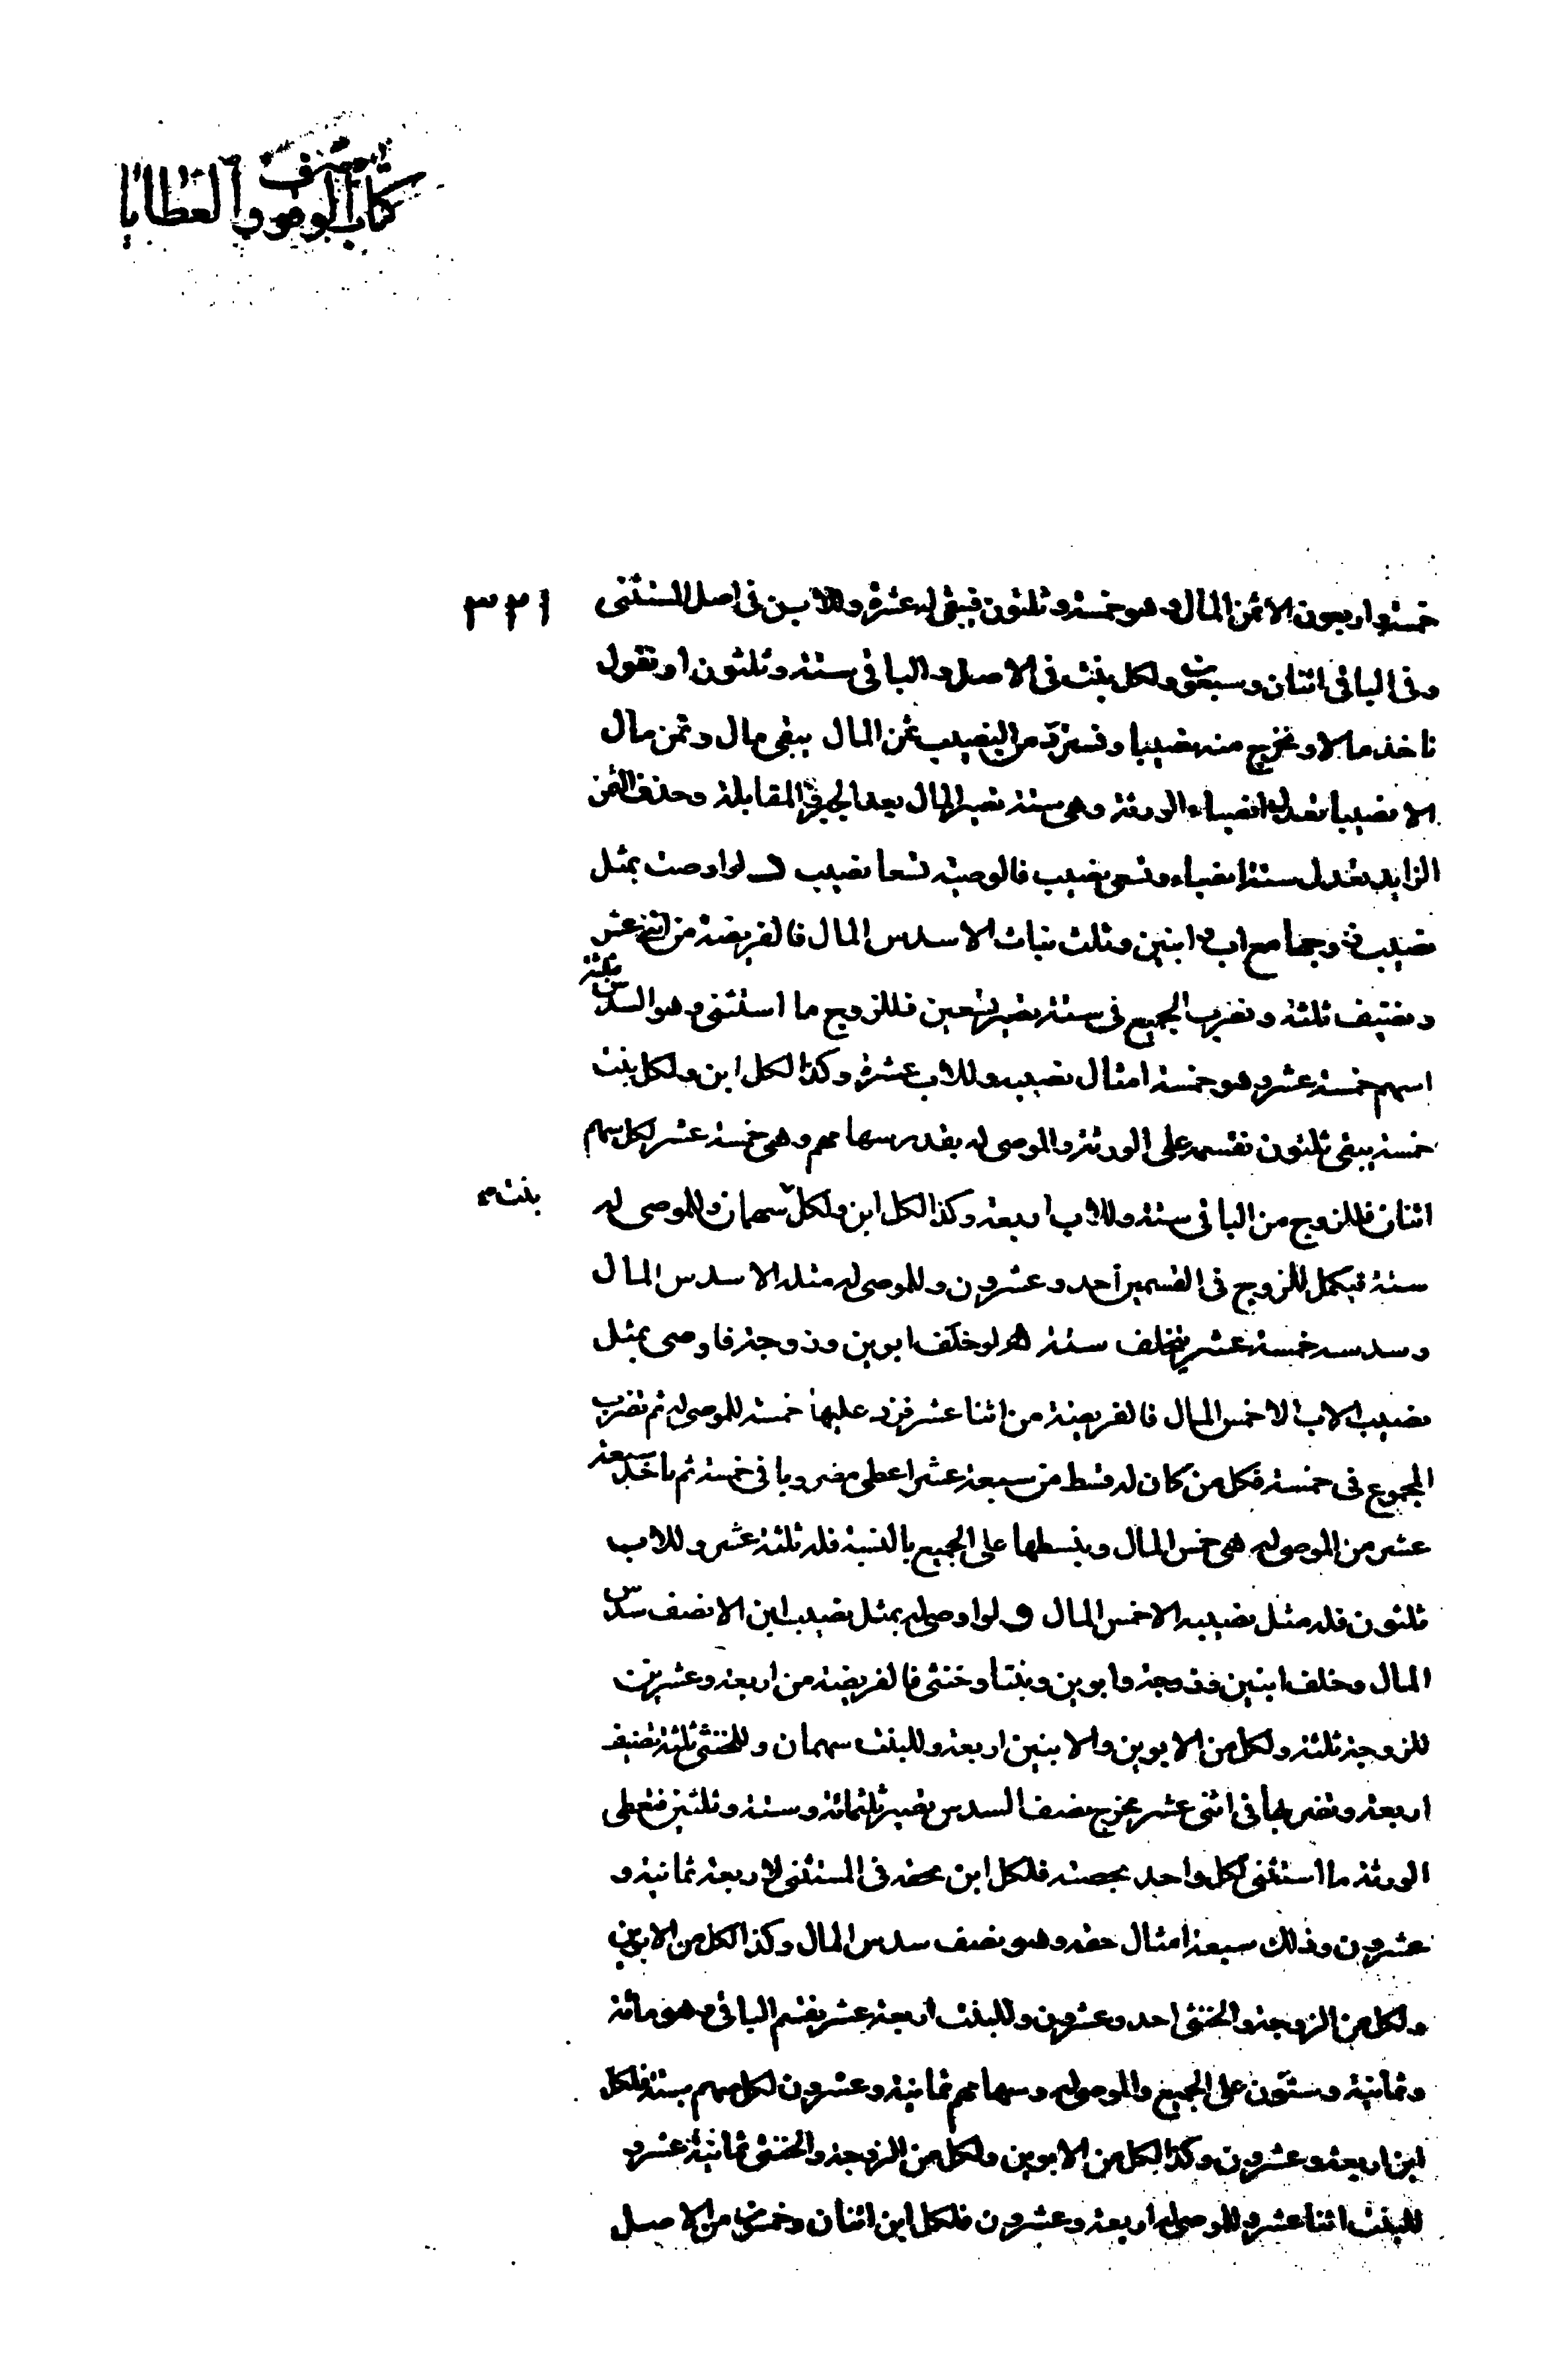 كتاب الوقوف والعطايا
٣٢١
خمسة واربعون الا ثمن المال وهو خمسة وثلثون فيبقى له عشرة وللابن فى اصل المستثنى
وفى الباقى اثنان وسبعون ولكل بنت فى الاصل والباقى ستة وثلثون او تقول
ناخذ مالا ونخرج منه نصيبا ونسترد من النصيب ثمن المال يبقى مال وثمن مال
الا نصيبا تعدل انصباء الورثة وهى ستة تصير المال بعد الجبر والمقابلة وحذف الثمن
الزايد تعدل ستة انصباء وتسعى نصيب فالوصية تسعا نصيب لو اوصت بمثل
نصيب زوجها مع اب وابنين وثلث بنات الا سدس المال فالفريضة من اثنى عشر
وتضيف ثلثة وتضرب الجميع فى ستة تصير تسعين فللزوج ما استثنى وهو السدس ثلثة
اسهم خمسة عشر وهو خمسة امثال نصيبه وللاب عشرة وكذا لكل ابن ولكل بنت
خمسة يبقى ثلثون تقسم على الورثة والموصى له بقدر سهامهم وهى خمسة عشر لكل سهم
اثنان فللزوج من الباقى ستة وللاب اربعة وكذا لكل ابن ولكل سهمان وللموصى له
بنت صح
ستة فيكمل للزوج فى القسمين احد وعشرون وللموصى له مثله الا سدس المال
وسدسه خمسة عشر يتخلف ستة لو خلف ابوين وزوجة فاوصى بمثل
نصيب الاب الا خمس المال فالفريضة من اثنا عشر فزد عليها خمسة للموصى له ثم تضرب
المجموع فى خمسة فكل من كان له قسط من سبعة عشر اعطى مضروبا فى خمسة ثم ياخذ سبعة
عشر من الموصى له هى خمس المال وبنسطها على الجميع بالنسبة فله ثلثة عشر وللاب
ثلثون فله مثل نصيبه الا خمس المال ولو اوصى له بمثل نصيب ابن الا نصف سدس
المال وخلف ابنين وزوجة وابوين وبنتا وخنثى فالفريضة من اربعة وعشرين
للزوجة ثلثة ولكل من الابوين والابنين اربعة وللبنت سهمان وللخنثى ثلثة تضيف
اربعة وتضربها فى اثنى عشر مخرج نصف السدس تصير ثلثمائة وستة وثلثين فتعطى
الورثة ما استثنى لكل واحد بحصته فلكل ابن بحقه فى المستثنى الاربعة ثمانية و
عشرون وذلك سبعة امثال حقه وهو نصف سدس المال وكذا لكل من الابوين
ولكل من الزوجة والخنثى احد وعشرون وللبنت اربعة عشر يقسم الباقى وهو مائة
وثمانية وستون على الجميع والموصى له وسهامهم ثمانية وعشرون لكل سهم ستة فلكل
ابن اربعة وعشرون وكذا لكل من الابوين ولكل من الزوجة والخنثى ثمانية عشر و
للبنت اثنا عشر وللموصى له اربعة وعشرون فلكل ابن اثنان وخمسون من الاصل